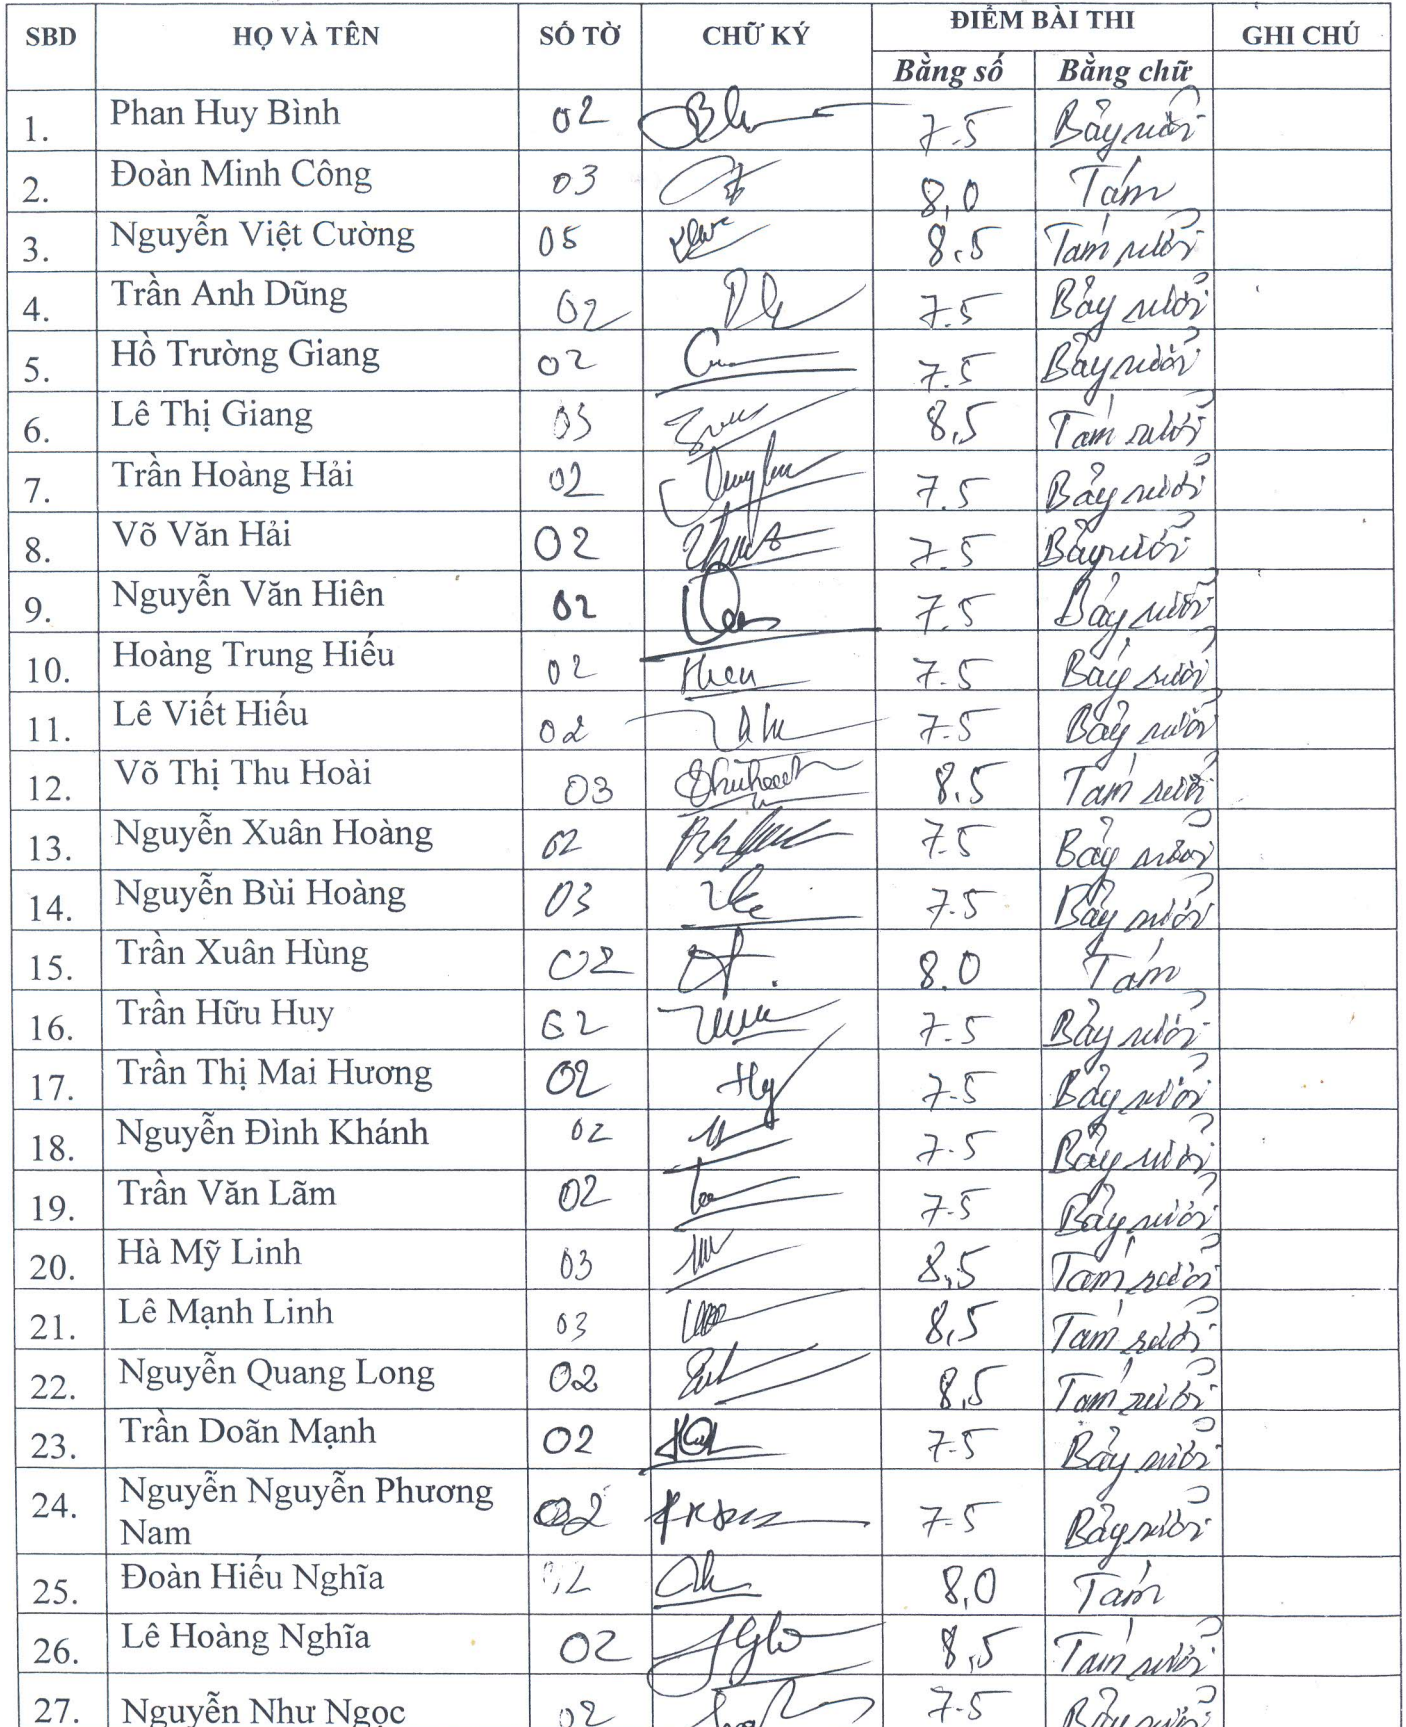 SBD HỌ VÀ TÊN SỐ TỜ CHỮ KÝ ĐIỂM BÀI THI GHI CHÚ
Bằng số Bằng chữ
1. Phan Huy Bình 02 7.5 Bảy rưỡi
2. Đoàn Minh Công 03 8,0 Tám
3. Nguyễn Việt Cường 05 8,5 Tám rưỡi
4. Trần Anh Dũng 02 7.5 Bảy rưỡi
5. Hồ Trường Giang 02 7.5 Bảy rưỡi
6. Lê Thị Giang 03 8,5 Tám rưỡi
7. Trần Hoàng Hải 02 7.5 Bảy rưỡi
8. Võ Văn Hải 02 7.5 Bảy rưỡi
9. Nguyễn Văn Hiên 02 7.5 Bảy rưỡi
10. Hoàng Trung Hiếu 02 7.5 Bảy rưỡi
11. Lê Viết Hiếu 02 7.5 Bảy rưỡi
12. Võ Thị Thu Hoài 03 8.5 Tám rưỡi
13. Nguyễn Xuân Hoàng 02 7.5 Bảy rưỡi
14. Nguyễn Bùi Hoàng 03 7.5 Bảy rưỡi
15. Trần Xuân Hùng 02 8.0 Tám
16. Trần Hữu Huy 02 7.5 Bảy rưỡi
17. Trần Thị Mai Hương 02 7.5 Bảy rưỡi
18. Nguyễn Đình Khánh 02 7.5 Bảy rưỡi
19. Trần Văn Lãm 02 7.5 Bảy rưỡi
20. Hà Mỹ Linh 03 8,5 Tám rưỡi
21. Lê Mạnh Linh 03 8,5 Tám rưỡi
22. Nguyễn Quang Long 02 8,5 Tám rưỡi
23. Trần Doãn Mạnh 02 7.5 Bảy rưỡi
24. Nguyễn Nguyễn Phương 02 7.5 Bảy rưỡi
Nam
25. Đoàn Hiếu Nghĩa 02 8,0 Tám
26. Lê Hoàng Nghĩa 02 8,5 Tám rưỡi
27. Nguyễn Như Ngọc 02 7.5 Bảy rưỡi